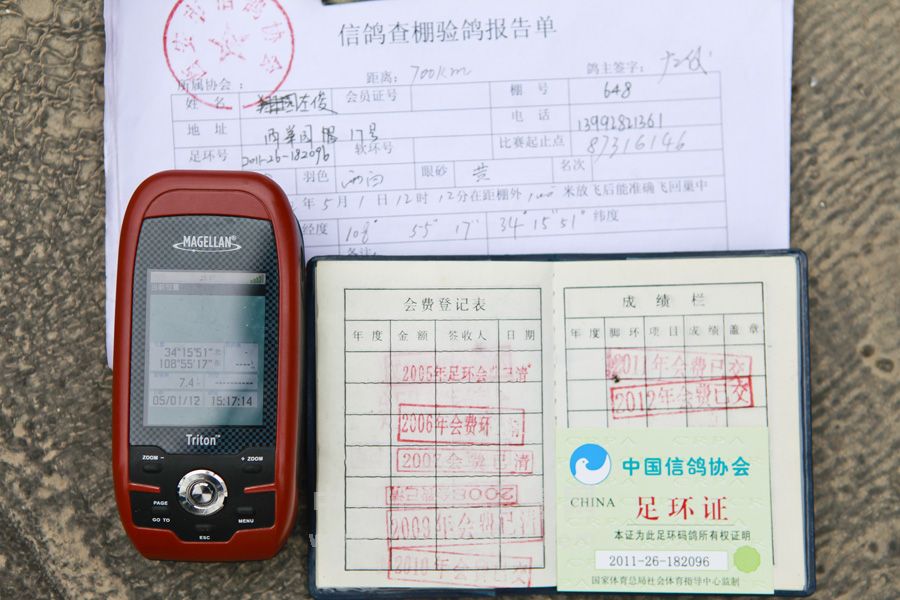 信鸽查棚验鸽报告单
所属协会： 距离：700km 鸽主签字：
姓名 左俊 会员证号 棚号 648
地址 17号 电话 13992821361
足环号 2011-26-182096 软环号 比赛起止点 87316146
羽色 雨白 眼砂 黄 名次
年5月1日12时12分在距棚外 米放飞后能准确飞回巢中
经度 108° 55" 17" 34° 15" 51" 纬度
备注
MAGELLAN
当前位置
34°15'51"
108°55'17"
7.4
05/01/12 15:17:14
Triton™
ZOOM − + ZOOM
PAGE
GO TO MENU
ESC
会费登记表
年度 金额 签收人 日期
2005年足环会 已清
2006年会费环 清
会费已清
2008
会费已清
2010年会费已交
成绩栏
年度 脚环 项目 成绩 盖章
2011年会费已交
2012年会费已交
中国信鸽协会
CHINA 足环证
本证为此足环码鸽所有权证明
2011-26-182096
国家体育总局社会体育指导中心监制